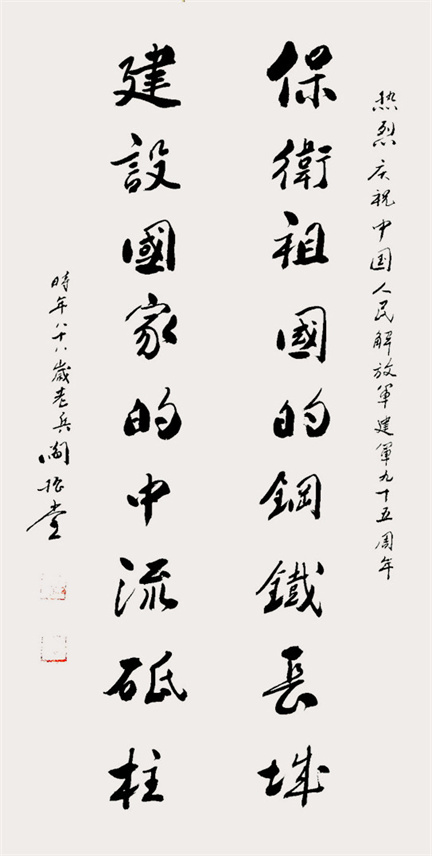 热烈庆祝中国人民解放軍建軍九十五周年
保衛祖國的鋼鐵長城
建設國家的中流砥柱
時年八十八歲老兵振堂